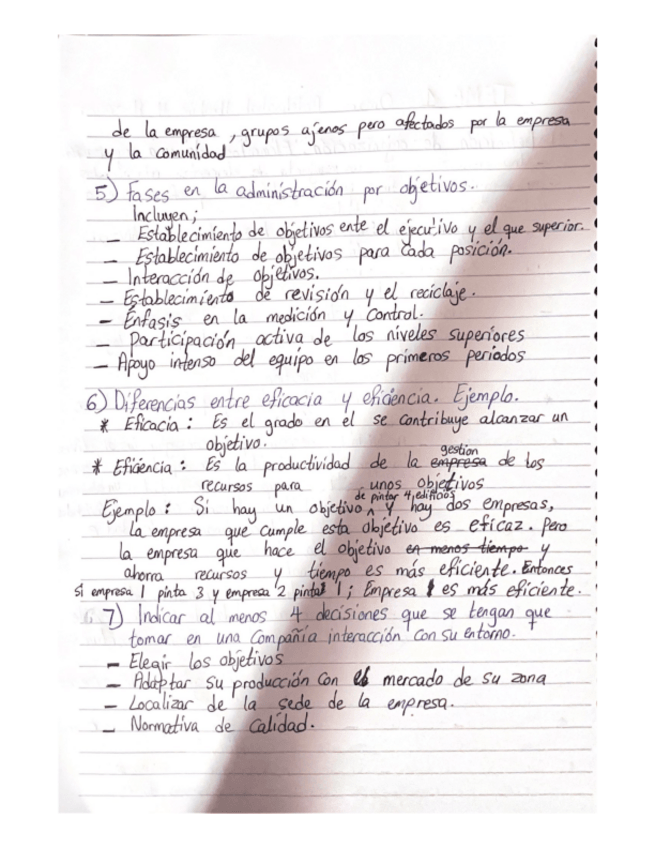 de la empresa, grupos ajenos pero afectados por la empresa
y la comunidad
5) Fases en la administración por objetivos.
Incluyen;
— Establecimiento de objetivos ente el ejecutivo y el que superior.
— Establecimiento de objetivos para cada posición.
— Interacción de objetivos.
— Establecimiento de revisión y el reciclaje.
— Énfasis en la medición y control.
— Participación activa de los niveles superiores
— Apoyo intenso del equipo en los primeros periodos
6) Diferencias entre eficacia y eficiencia. Ejemplo.
* Eficacia: Es el grado en el se contribuye alcanzar un
objetivo.
gestion
* Eficiencia: Es la productividad de la empresa de los
recursos para unos objetivos
de pintar 4 edificios
Ejemplo: Si hay un objetivo ^ y hay dos empresas,
la empresa que cumple esta objetivo es eficaz. Pero
la empresa que hace el objetivo en menos tiempo y
ahorra recursos y tiempo es más eficiente. Entonces
si empresa 1 pinta 3 y empresa 2 pinta 1; Empresa 1 es más eficiente.
7) Indicar al menos 4 decisiones que se tengan que
tomar en una Compañia interacción con su entorno.
— Elegir los objetivos
— Adaptar su producción con el mercado de su zona
— Localizar de la sede de la empresa.
— Normativa de Calidad.